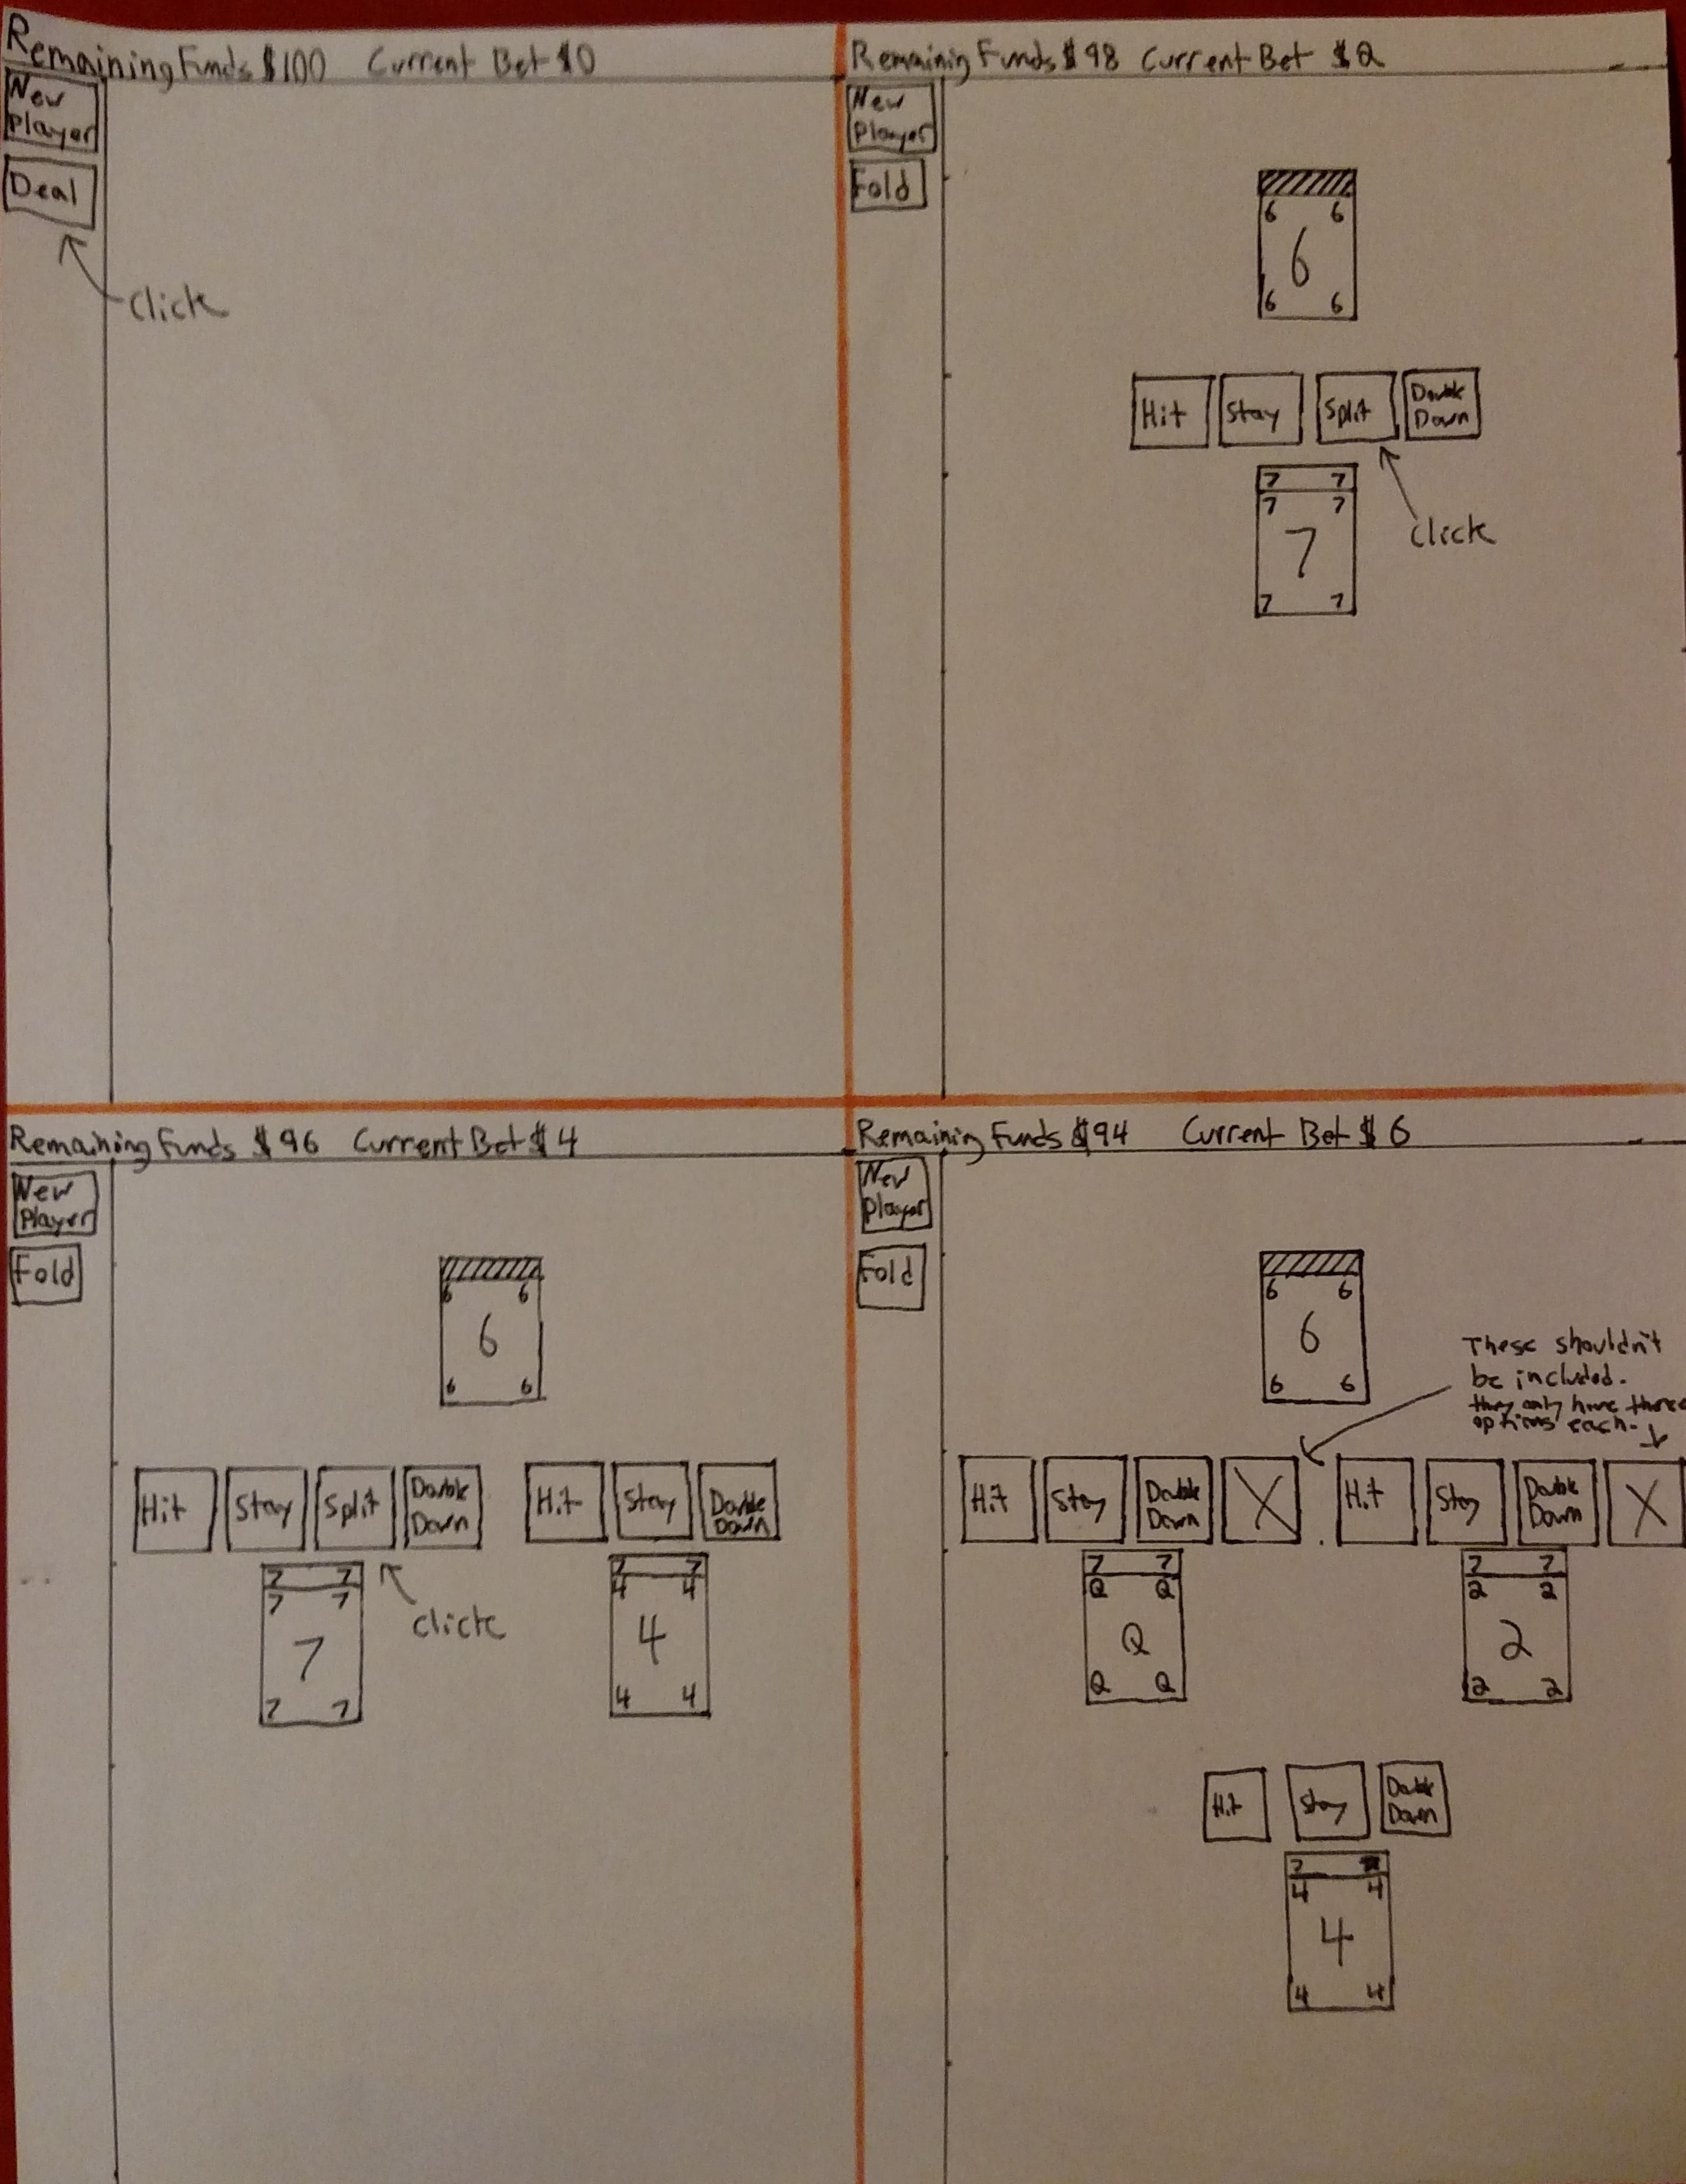 Remaining Funds $100 Current Bet $0
New
Player
Deal
Click
Remaining Funds $98 Current Bet $2
New
Player
Fold
6 6
6
6 6
Hit Stay Split Double
Down
7 7
7 7
7
7 7
Click
Remaining Funds $96 Current Bet $4
New
Player
Fold
6 6
6
6 6
Hit Stay Split Double
Down
Hit Stay Double
Down
7 7
7 7
7
7 7
Click
7 7
4 4
4
4 4
Remaining Funds $94 Current Bet $6
New
Player
Fold
6 6
6
6 6
These shouldn't
be included.
they only have three
options each.
Hit Stay Double
Down X
Hit Stay Double
Down X
7 7
Q Q
Q
Q Q
7 7
2 2
2
2 2
Hit Stay Double
Down
7
4 4
4
4 4